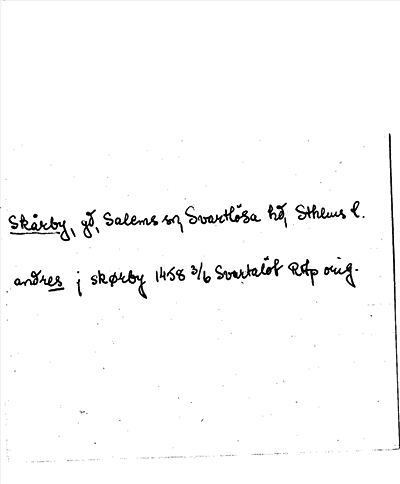 Skårby, gd, Salems sn, Svartlösa hd, Sthlms l.
andres j skørby 1458 3/6 Svartalöt RAp orig.